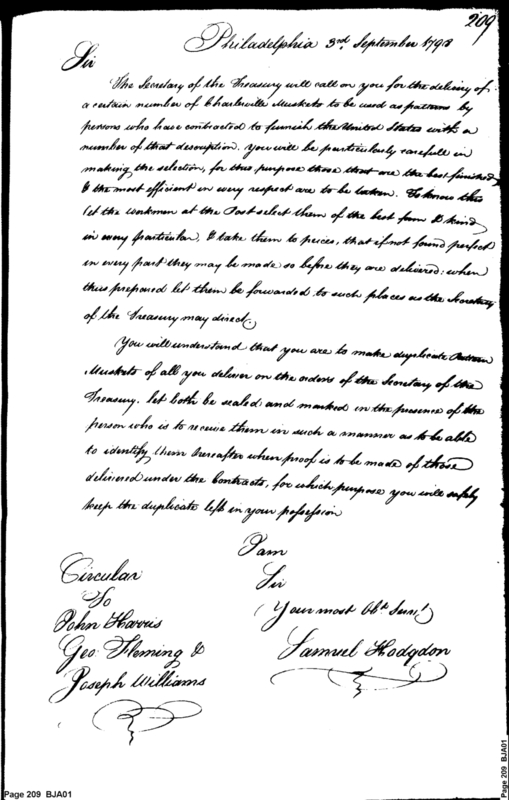 209
Philadelphia 3rd September 1798
Sir
The Secretary of the Treasury will call on you for the delivery of
a certain number of Charleville Muskets to be used as patterns by
persons who have contracted to furnish the United States with a
number of that description. You will be particularly carefull in
making the selection, for this purpose those that are the best finished
& the most efficient in every respect are to be taken. To know this
let the workmen at the Post select them of the best form & kind
in every particular, & take them to peices, that if not found perfect
in every part they may be made so before they are delivered: when
thus prepared let them be forwarded to such places as the Secretary
of the Treasury may direct.
You will understand that you are to make duplicate Pattern
Muskets of all you deliver on the orders of the Secretary of the
Treasury. let both be sealed and marked in the presence of the
person who is to receive them in such a manner as to be able
to identify them hereafter when proof is to be made of those
delivered under the contracts, for which purpose you will safely
keep the duplicate left in your possession
I am
Sir
Your most Obt Servt
Samuel Hodgdon
Circular
To
John Harris
Geo Fleming &
Joseph Williams
Page 209 BJA01
Page 209 BJA01